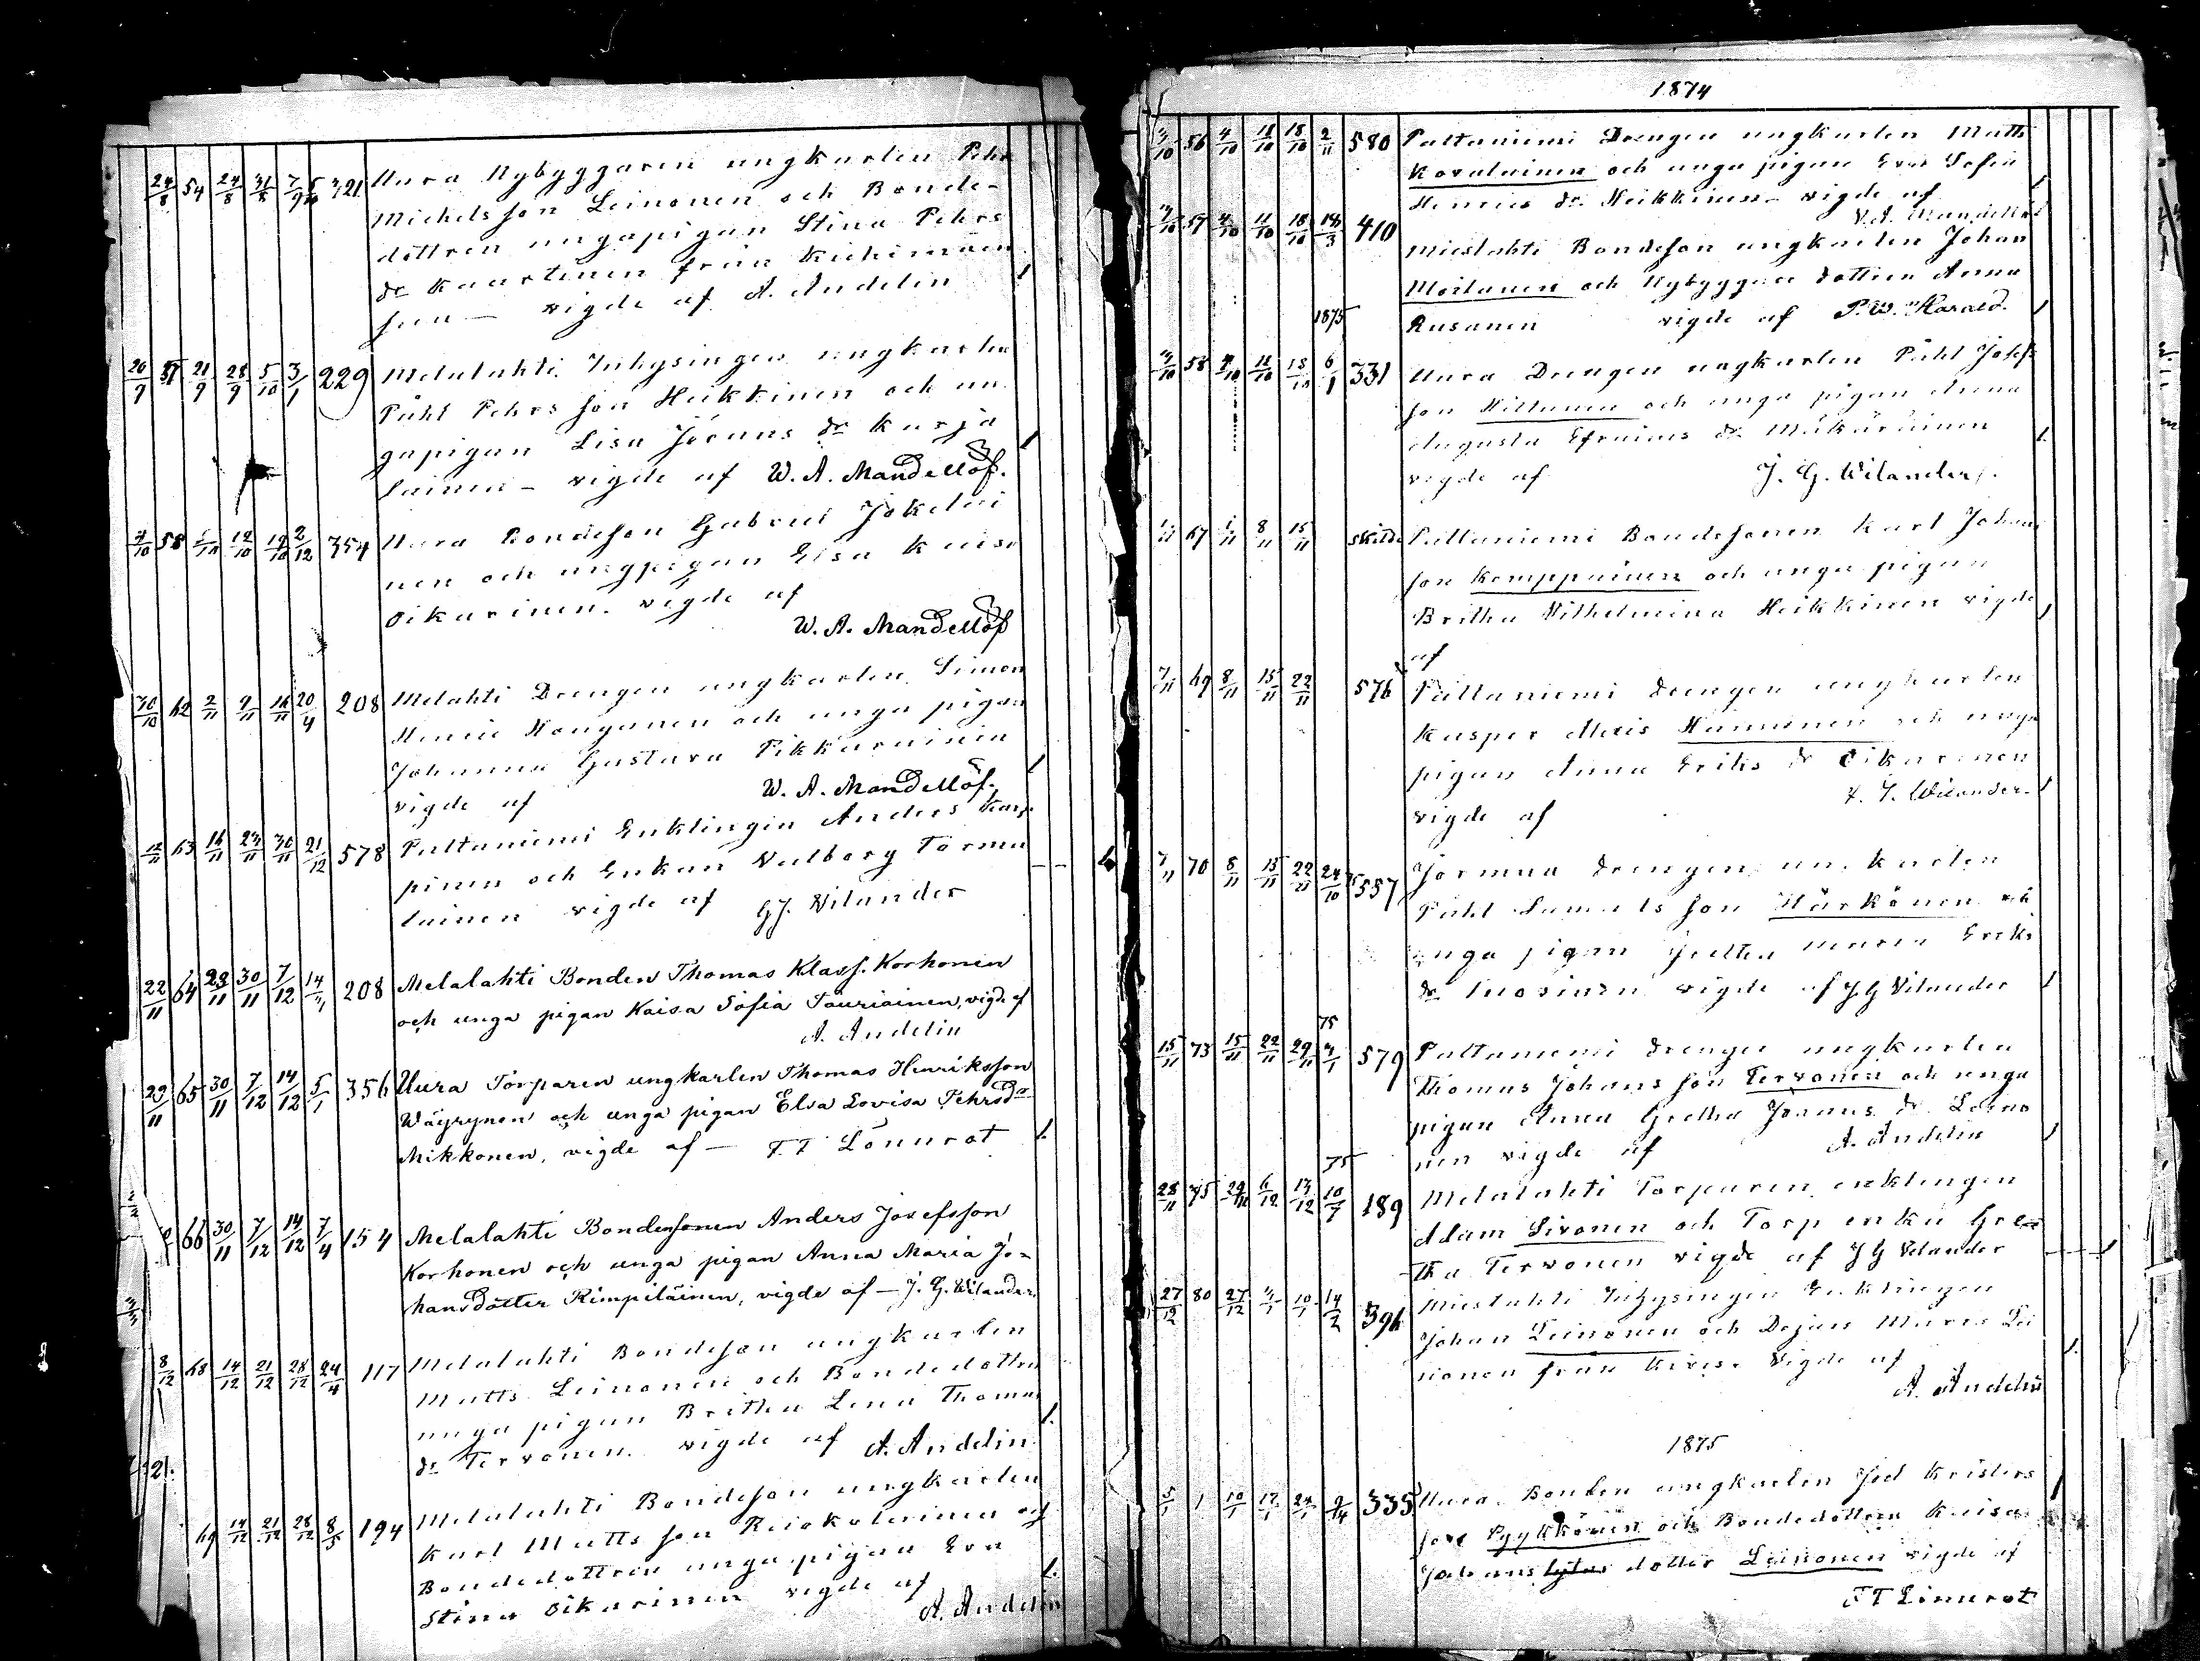 24/8 54 24/8 31/8 7/9 321 Uura Nybyggaren ungkarlen Pehr
Michelsson Leinonen och Bonde-
dottren ungapigan Stina Pehrs
dr Kaartinen från
vigde af A. Andelin
20/9 57 21/9 28/9 5/10 3/1 229 Melalahti Inhysingen ungkarlen
Påhl Pehrs son Heikkinen och un
gapigan Lisa Joenns dr Karja
lainen – vigde af W. A. Mandellöf.
4/10 58 12/10 19/10 2/12 354 Uura Bondeson Gabriel Jokelai
nen och ungpigan Elsa Kaisa
Oikarinen. vigde af
W. A. Mandellöf
30/10 62 2/11 9/11 16/11 20/4 208 Melahti Drengen ungkarlen Simon
Henric Konganen och unga pigan
Johanna Gustava Pikkarainen
vigde af W. A. Mandellöf.
12/11 63 16/11 23/11 30/11 21/12 578 Paltaniemi Enklingen Anders Karp
pinen och Enkan Valborg Torma
lainen vigde af G J. Vilander
22/11 64 23/11 30/11 7/12 14/4 208 Melalahti Bonden Thomas Klass. Korhonen
och unga pigan Kaisa Sofia Tauriainen, vigde af
A. Andelin
29/11 65 30/11 7/12 14/12 5/1 356 Uura Torparen ungkarlen Thomas Henriksson
Wäyrynen och unga pigan Elsa Lovisa Pehrsdr
Mikkonen, vigde af – F. T Lönnrot
66 30/11 7/12 14/12 7/4 154 Melalahti Bondesonen Anders Josefsson
Korhonen och unga pigan Anna Maria Jo-
hansdotter Rimpiläinen, vigde af – J. G. Wilander.
8/12 68 14/12 21/12 28/12 24/4 117 Melalahti Bondeson ungkarlen
Matts Leinonen och Bondedottren
unga pigan Britha Lena Thomas
dr Tervonen. vigde af A. Andelin
69 14/12 21/12 28/12 8/3 194 Melalahti Bondeson ungkarlen
Karl Matts son och
Bondedottren unga pigan Eva
Stina Oikarinen vigde af
A. Andelin
1874
3/10 56 4/10 11/10 18/10 2/11 580 Paltaniemi Drengen ungkarlen Matts
Kovalainen och unga pigan Eva Sofia
Henrics dr Heikkinen – vigde af
W. A. Mandellöf
57 4/10 11/10 18/10 18/3 410 Mieslahti Bondeson ungkarlen Johan
Moilanen och Nybyggare dottren Anna
1875 Rusanen vigde af P. W. Harald.
3/10 58 4/10 11/10 18/10 6/1 331 Uura Drengen ungkarlen Påhl Josefs
son Hiltunen och unga pigan Anna
Augusta Efraims dr Mikäräinen
vigde af J. G. Wilander.
67 1/11 8/11 15/11 skilda Paltaniemi Bondesonen Karl Johans
son Kemppainen och unga pigan
Britha Vilhelmina Heikkinen vigde
af
7/11 69 8/11 15/11 22/11 576 Paltaniemi drengen ungkarlen
Kasper Hannunen och unga
pigan Anna Eriks dr Oikarinen
vigde af J. G. Wilander.
7/11 70 8/11 15/11 22/11 24/10 557 Jormua drengen ungkarlen
Påhl Samuels son Härkönen och
unga pigan Gretha Maria Eriks
dr vigde af J G Vilander
75
15/11 73 15/11 22/11 29/11 4/1 579 Paltaniemi drengen ungkarlen
Thomas Johans son Tervonen och unga
pigan Anna Gretha Joenns dr Leino
nen vigde af A. Andelin
75
28/11 75 29/11 6/12 13/12 10/7 189 Melalahti Torparen enklingen
Adam Sivonen och Torp enka Gre
tha Tervonen vigde af J G Vilander
27/12 80 27/12 3/1 10/1 14/2 396 Mieslahti Inhysingen Enklingen
Johan Leinonen och Dejan Maria Lei
nonen från vigde af
A. Andelin
1875
5/1 1 10/1 17/1 24/1 9/4 335 Uura Bonden ungkarlen Joel Kristers
son Pyykkönen och Bondedottren Kaisa
Johans dotter Leinonen vigde af
F T Lönnrot